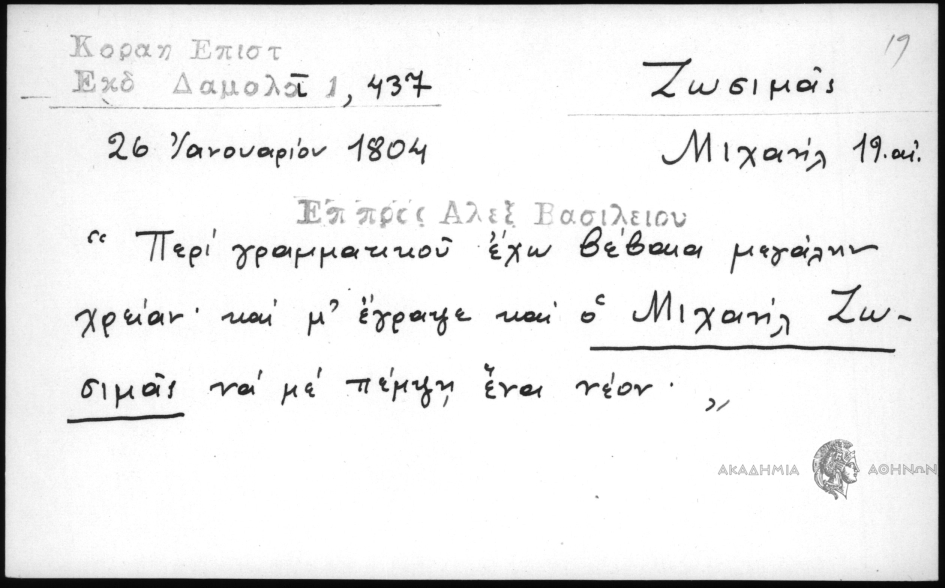 19
Κοραη Επιστ
Εκδ Δαμαλᾶ 1, 437
Ζωσιμᾶς
26 Ἰανουαρίου 1804
Μιχαήλ 19. αἰ.
Επ πρὸς Αλεξ Βασιλειου
“Περί γραμματικοῦ ἔχω βέβαια μεγάλην
χρείαν· καί μ’ ἔγραψε καί ὁ Μιχαήλ Ζω-
σιμᾶς νά μέ πέμψῃ ἕνα νέον· „
ΑΚΑΔΗΜΙΑ ΑΘΗΝΩΝ